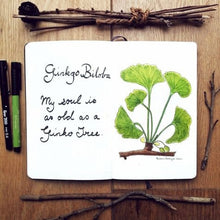 Ginkgo Biloba
My soul is
as old as a
Ginko Tree.